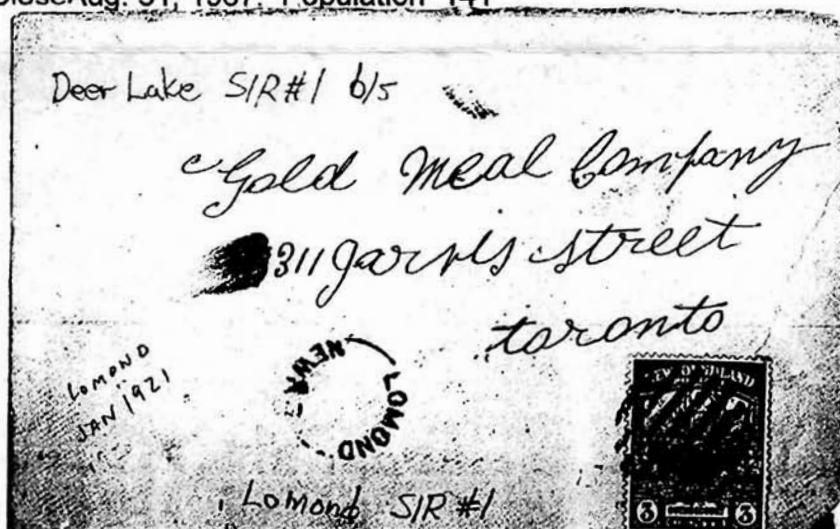 Aug. 31, 1967. Population 141
Deer Lake S/R #1 b/s
Gold Meal Company
311 Jarvis street
toronto
LOMOND
JAN 1921
LOMOND
NEWF
NEWFOUNDLAND
3 3
Lomond S/R #1